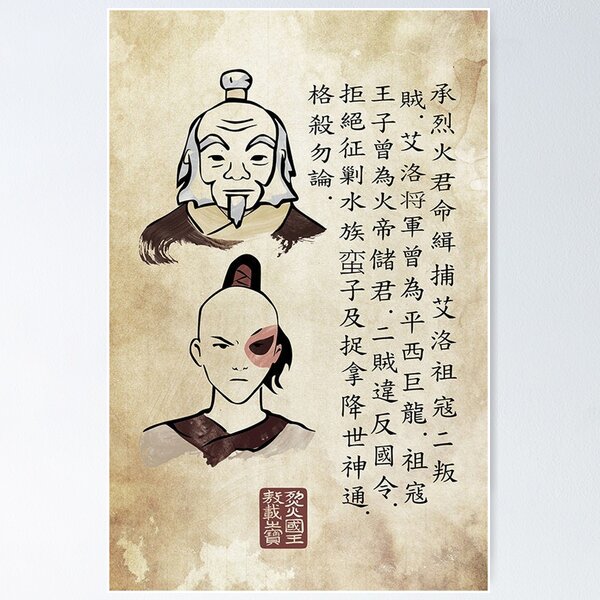 承烈火君命緝捕艾洛祖寇二叛
賊．艾洛將軍曾為平西巨龍．祖寇
王子曾為火帝儲君．二賊違反國令．
拒絕征剿水族蛮子及捉拿降世神通．
格殺勿論．
烈火國王